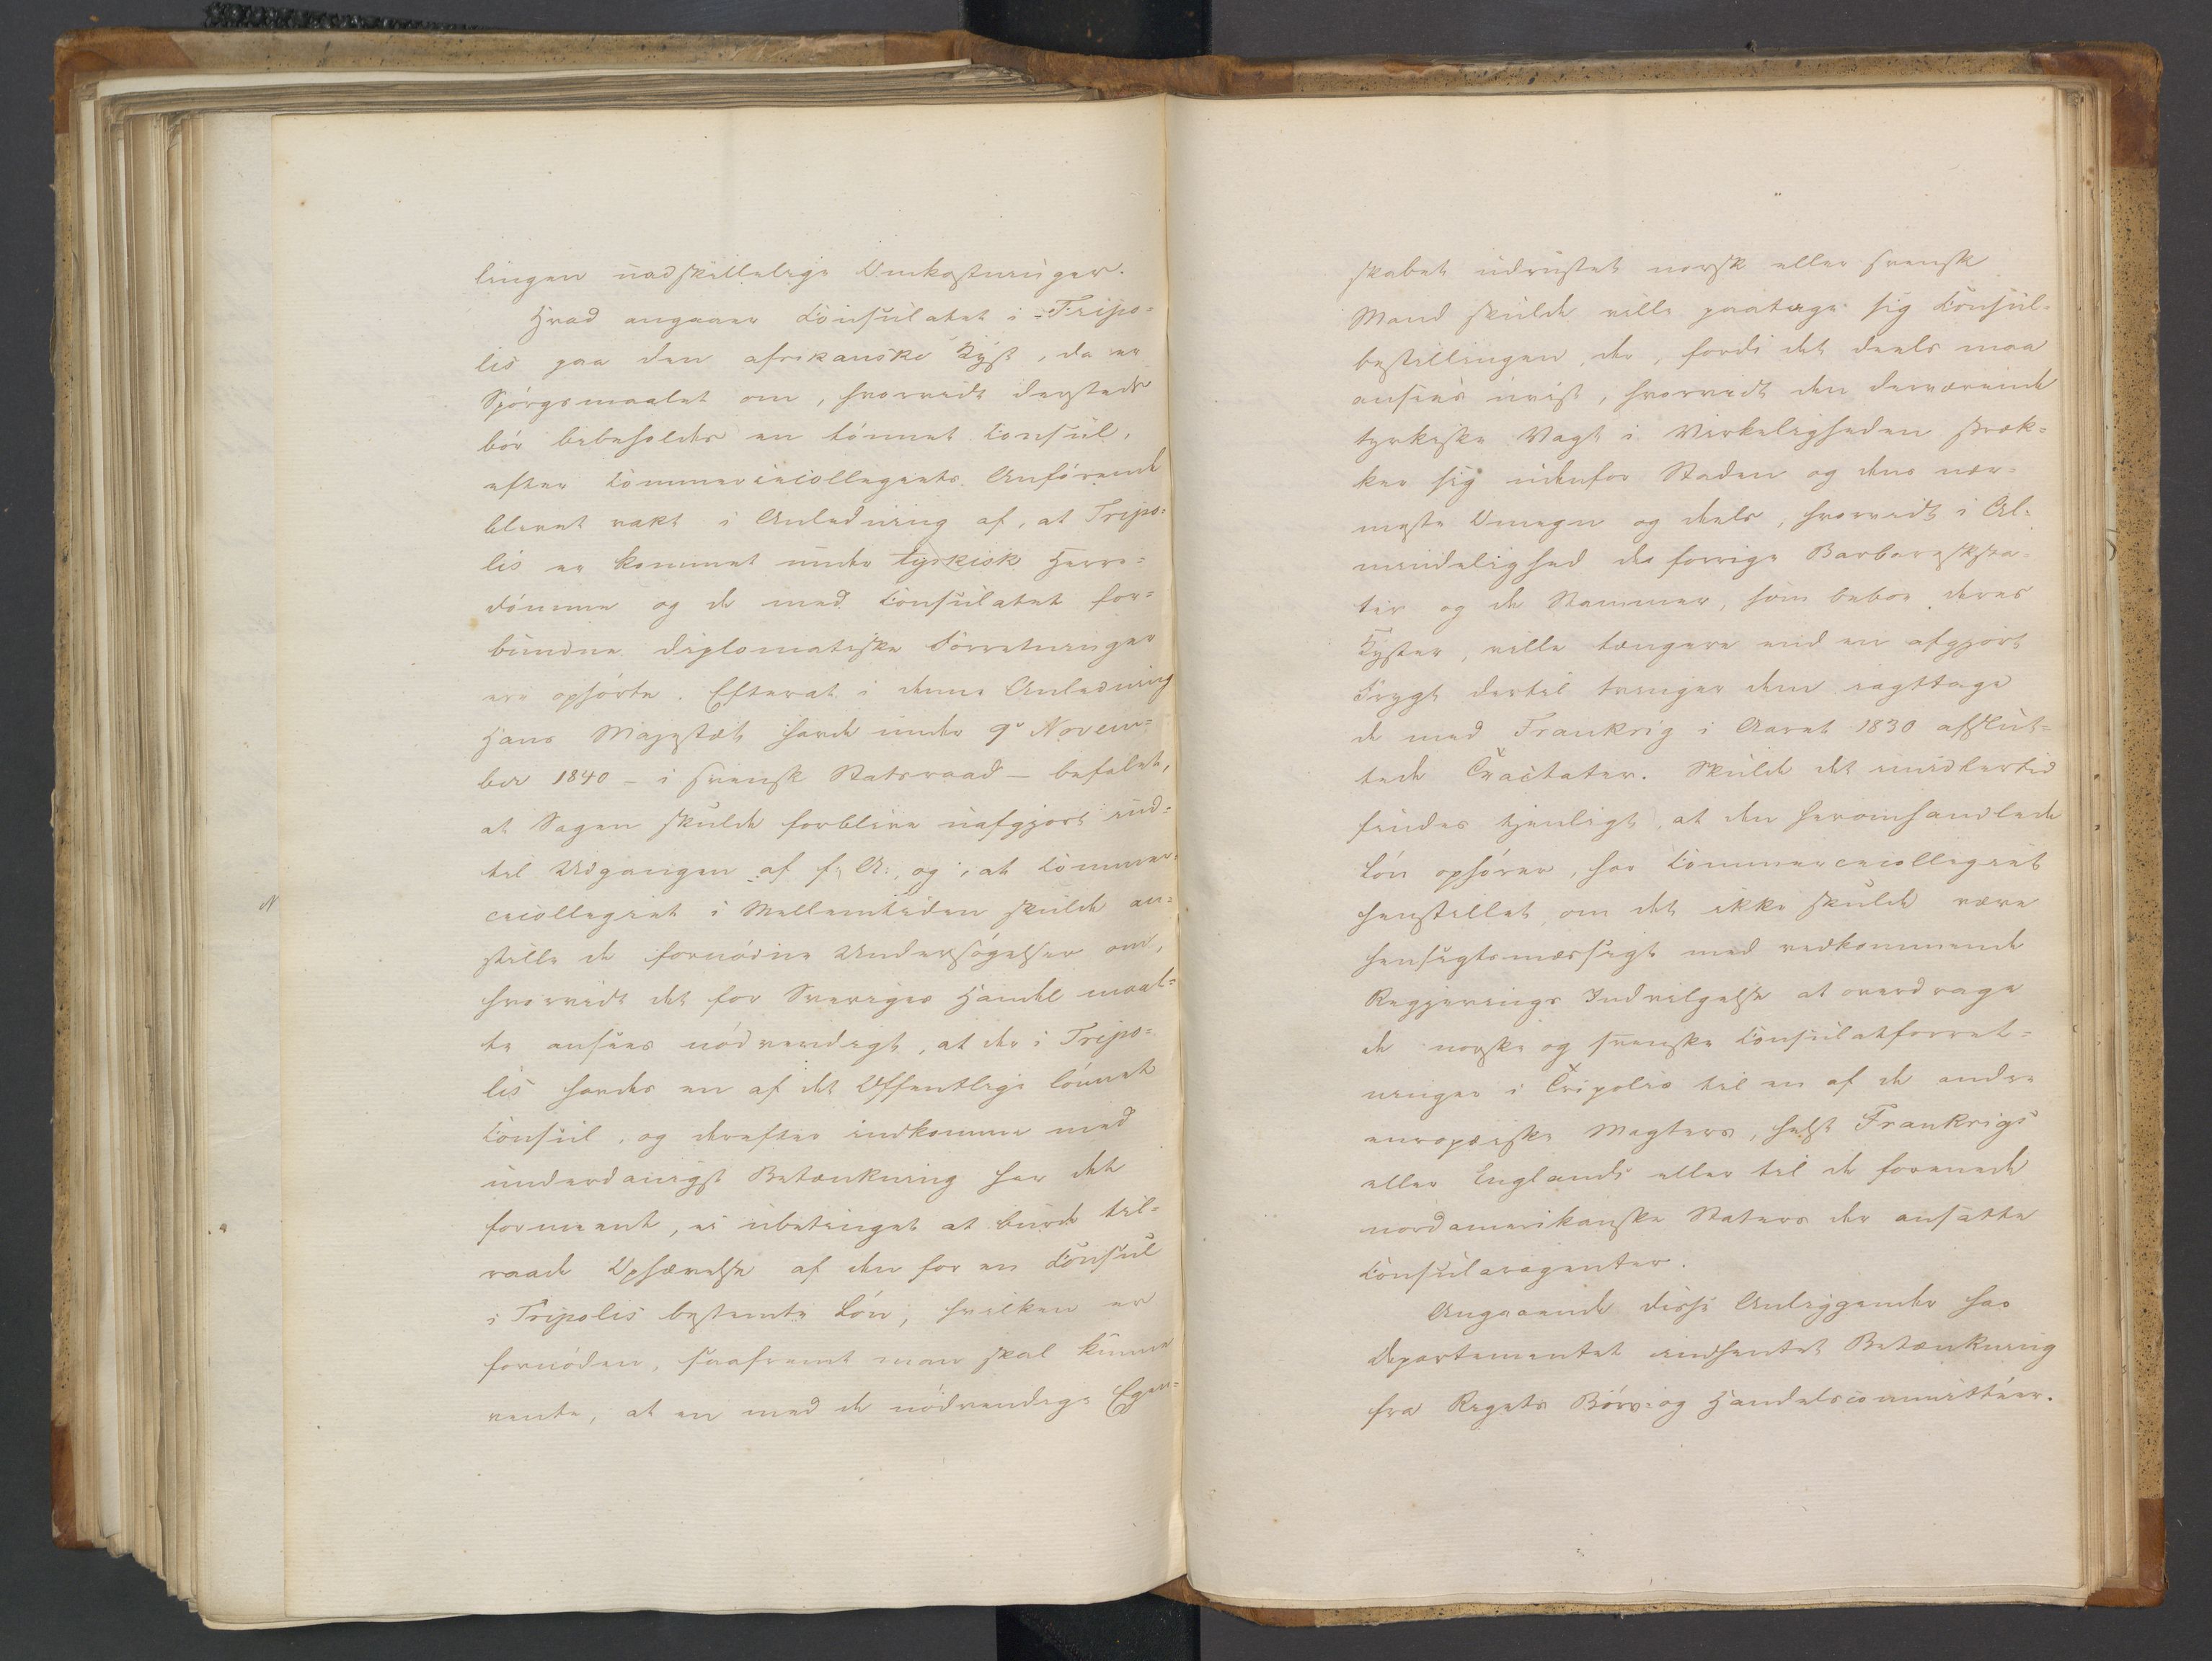 lingen uadskillelige Omkostninger.
Hvad angaaer Consulatet i Tripo=
lis paa den afrikanske Kyst, da er
Spörgsmaalet om, hvorvidt dersteds
bör bibeholdes en lönnet Consul,
efter Commercecollegiets Anförende
blevet vakt i Anledning af, at Tripo=
lis er kommet under tyrkisk Herre=
dömme og de med Consulatet for=
bundne diplomatiske Forretninger
ere ophörte. Efterat i denne Anledning
Hans Majestæt havde under 9de Novem=
ber 1840 - i svensk Statsraad - befalet,
at Sagen skulde forblive uafgjort ind=
til Udgangen af f: A:, og, at Commer=
cecollegiet i Mellemtiden skulde an=
stille de fornödne Undersögelser om,
hvorvidt det for Sveriges Handel maat=
te ansees nödvendigt, at der i Tripo=
lis havdes en af det Offentlige lönnet
Consul, og derefter indkomme med
underdanigst Betænkning har det
formeent, ei ubetinget at burde til=
raade Ophævelse af den for en Consul
i Tripolis bestemte Lön, hvilken er
fornöden, saafremt man skal kunne
vente, at en med de nödvendige Egen=
skaber udrustet norsk eller svensk
Mand skulde ville paatage sig Consul=
bestillingen der, fordi det deels maa
ansees uvist, hvorvidt den derværende
tyrkiske Magt i Virkeligheden stræk=
ker sig udenfor Staden og dens nær=
meste Omegn og deels, hvorvidt i Al=
mindelighed de forrige Barbaresksta=
ter og de Stammer, som beboe deres
Kyster, ville længere end en afgjort
Frygt dertil tvinger dem iagttage
de med Frankrig i Aaret 1830 afslut=
tede Tractater. Skulde det imidlertid
findes tjenligt, at den heromhandlede
Lön ophörer, har Commercecollegiet
henstillet, om det ikke skulde være
hensigtsmæssigt med vedkommende
Regjerings Indvilgelse at overdrage
de norske og svenske Consulatforret=
ninger i Tripolis til en af de andre
europæiske Magters, helst Frankrigs
eller Englands eller til de forenede
nordamerikanske Staters der ansatte
Consularagenter.
Angaaende disse Anliggender har
Departementet indhentet Betænkning
fra Rigets Börs- og Handelscommittéer.